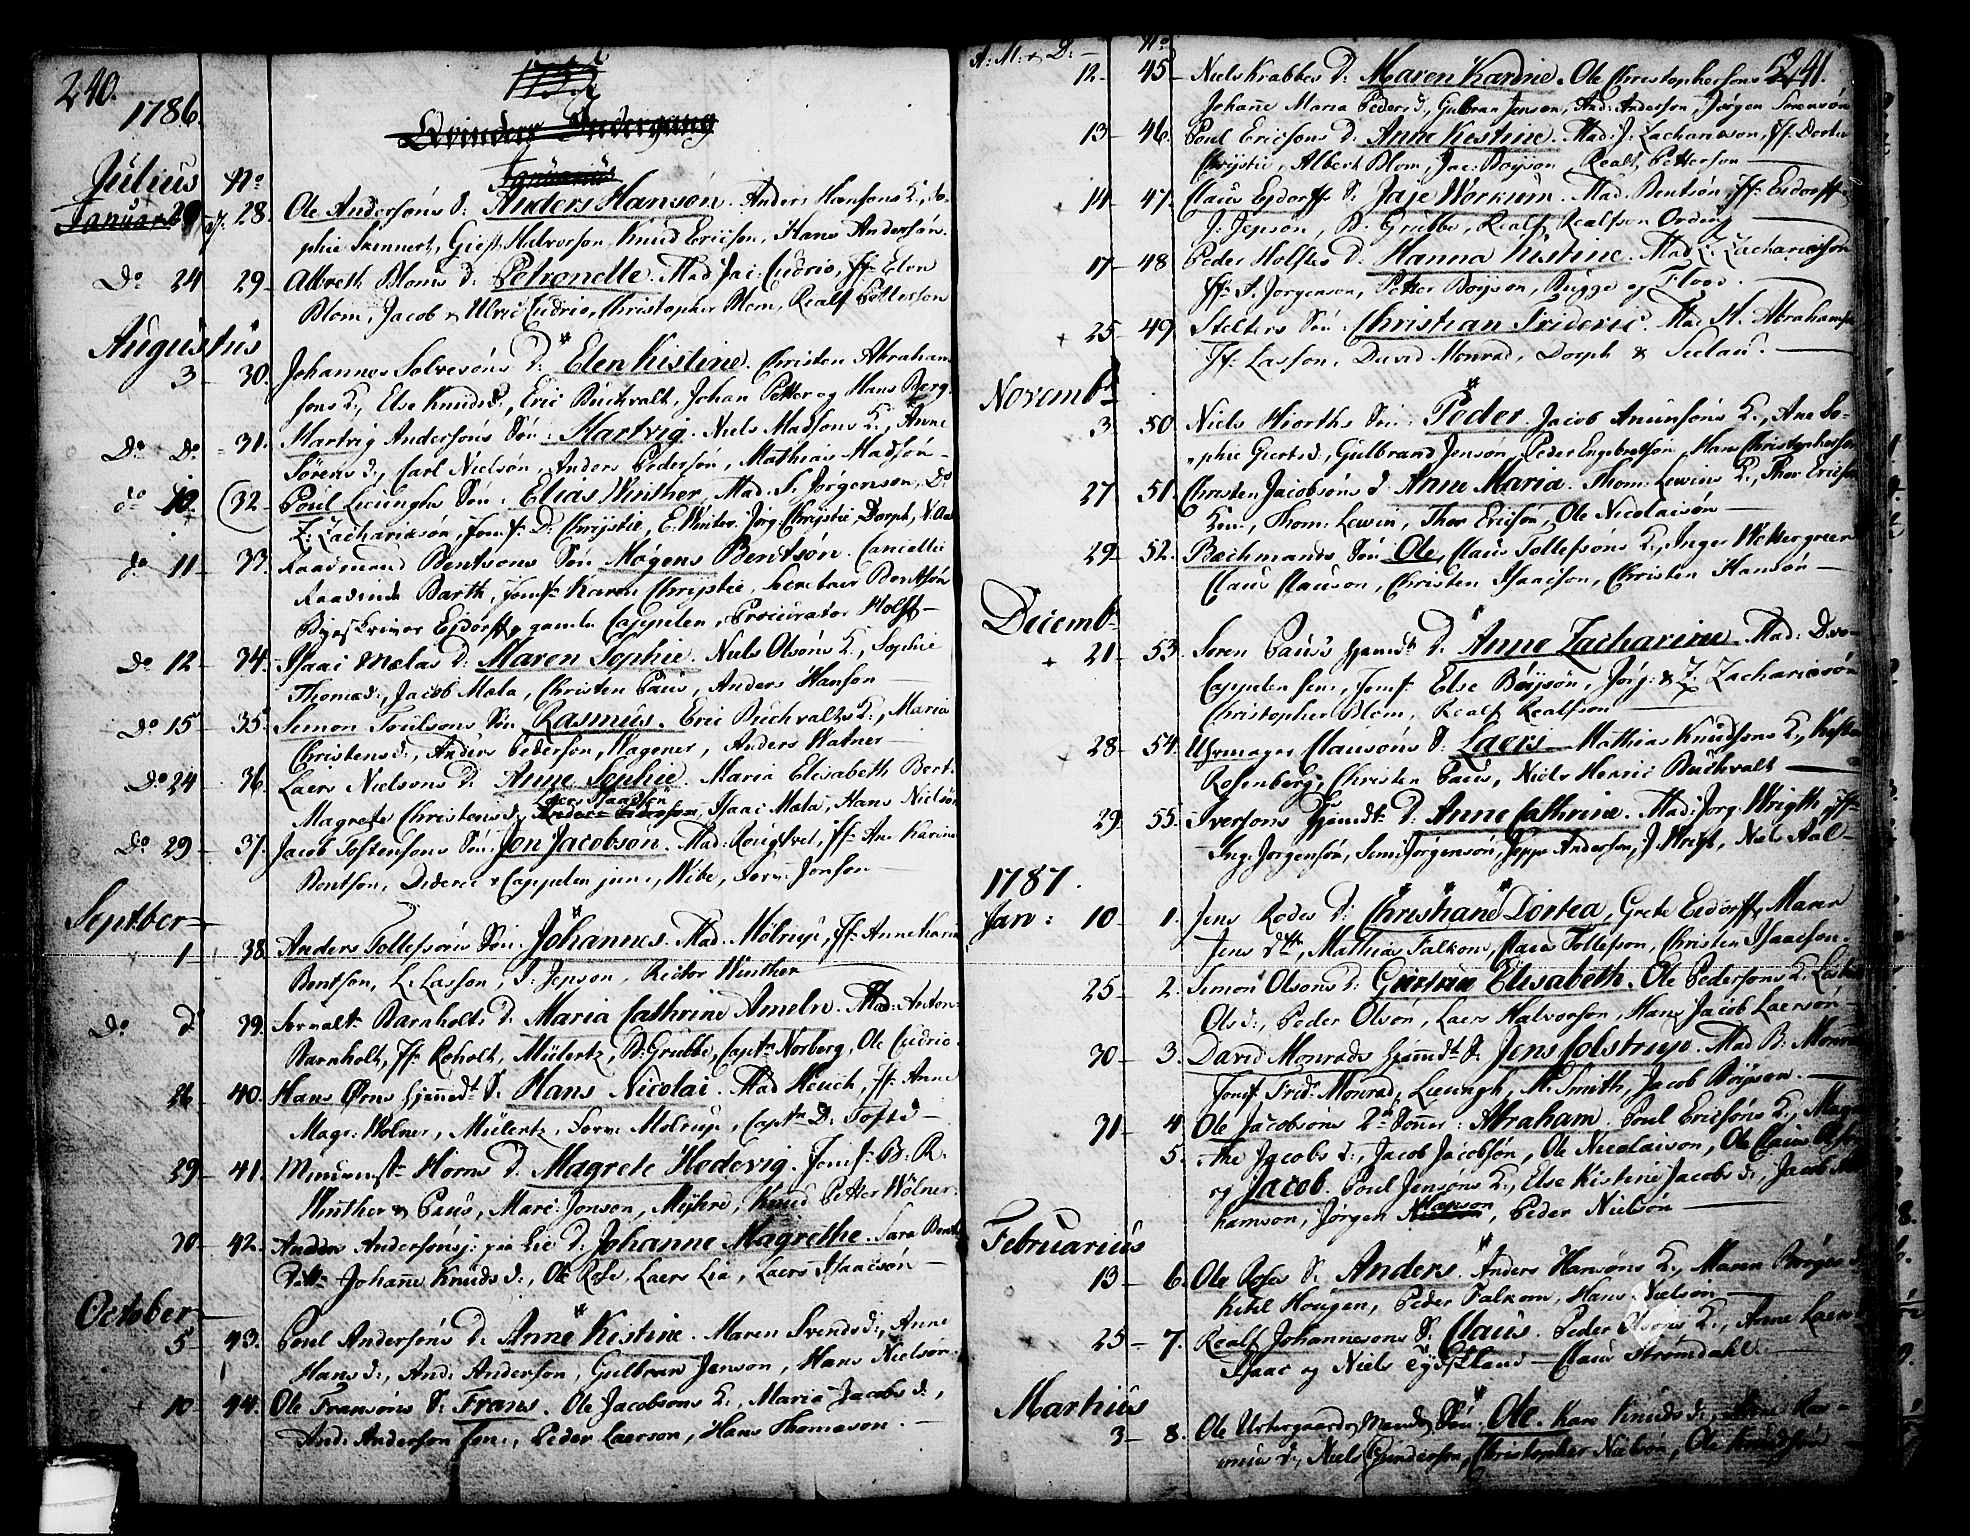 240.
1786.
Qvinders Indergang
Januarius
Julius No
Januar 29 28. Ole Andersøns S: Anders Hansøn. Anders Hansøns K., So-
phie Skinnert, Giert Halvorson, Knud Ericson, Hans Andersøn.
Do 24 29. Albreth Bloms D: Petronelle. Mad Jac: Cudrio, Jfr Elen
Blom, Jacob & Ulric Cudrio, Christopher Blom, Realf Petterson
Augustus
3 30. Johannes Solvesøns D: Elen Kistine. Christen Abraham
sons K., Else Knudsd., Eric Buchvalt, Johan Petter og Hans Berg
Do Do 31. Hartvig Andersøns Søn: Hartvig. Niels Madsøns K., Anne
Sørensd:, Carl Nielsøn, Anders Pedersøn, Mathias Madsøn
do 10. 32. Poul Leuunghs Søn: Elias Winther, Mad: S. Jørgenson, Do
Z: Zachariasøn, Jomf. D: Chrystie, E. Winter. Jørg: Chrystie, Dorph, N. Aal
do 11 33. Raadmand Bentsons Søn Mogens Bentsøn. Cancellie
Raadinde Barth, Jomf. Karen Chrystie, Secretair Bentsøn
Byeskriver Ejdorff, gamle Cappelen, Procurator Holst
Do 12 34. Isaac Mælas D: Maren Sophie. Niels Olsøns K., Sophie
Thomasd:, Jacob Mæla, Christen Paus, Anders Hanson
Do 15 35. Simon Poulsons Søn Rasmus. Eric Buchvalts K., Maria
Christensd:, Anders Pederson, Wagener, Anders Watner
Do 24 36. Laers Nielsons D: Anne Sophie. Maria Elisabeth Bert.
Laers Isaacsøn
Magrete Christensd:, Anders Pederson, Isaac Mæla, Hans Nielsøn
Do 29 37. Jacob Tostensons Søn: Jon Jacobsøn. Mad: Rougtvet, Jfr Ane Karine
Bentson, Dideric & Cappelen jun:, Wibe, Form: Jonson
Septber
1 38. Anders Tollefsøns Søn: Johannes. Mad. Mølrup, Jfr Anne Karin
Bentson, L. Lasson, I. Jepson, Rector Winther
Do d: 39. Forvalt: Barnholts D: Maria Cathrine Amelie. Mad: Anton-
Barnholt, Jfr Roholt, Mülertz, B: Grubbe, Captn Norberg, Ole Cudrio.
26 40. Hans Ørns hjemmedt S: Hans Nicolai. Mad Heuch, Jfr Anne
Magr: Wolner, Mülertz, Form: Mølrup, Captn D: Tofts
29 41. Horns D: Magrete Hedevig. Jomfr. B. R.
Winther & Paus, Marc: Jonson, Myhre, Knud Petter Wølner.
30 42. Anders Andersønsj: paa Lie D: Johanne Magrethe. Sara Bent
Johane Knudsd:, Ole Rose, Laers Lia, Laers Isaacsøn
October
5 43. Poul Andersøns D: Anne Kistine. Maren Svendsd:, Anne
Hansd:, And: Anderson, Gulbran Jenson, Hans Nielsøn.
10 44. Ole Fransøns S: Frans. Ole Jacobsons K., Maria Jacobsd:,
And: Anderson sen:, Peder Laerson, Hans Thomason.
A: M: & D: No 241.
12 45. Niels Krabbes D: Maren Karine. Ole Christophersons K,
Johane Maria Pedersd:, Gulbran Jenson, And: Anderson, Jørgen Sørensøn
13 46. Poul Ericsons D: Anne Kestine. Mad: J: Zachariason, Jfr: Dorte
Chrystie, Albert Blom, Jac: Boyson, Realf Petterson
14 47. Claus Ejdorffs S: Jaje Workum. Mad. Bentsøn, Jfr: Eidorff,
J: Jepson, B: Grubbe, Realf Realfson Ording
17 48 Peder Holstes D: Hanna Kistine. Mad Z: Zachariason
Jfr. S. Jørgenson, Petter Boyson, Rugge og Flood.
25 49. Stelters Søn: Christian Frideric. Mad H. Abrahamson
Jfr: Lasson, David Monrad, Dorph & Seelau.
Novembr
3 50 Niels Hiorths Søn: Peder. Jacob Amunsøns K., Ane So-
phie Giertsd:, Gulbrand Jensøn, Peder Engebretsøn, Hans Christopherson
27 51. Christen Jacobsøns D: Anne Maria. Thom: Lewins K., Thor Ericson
Kone, Thom: Lewin, Thor Ericsøn, Ole Nicolaisøn
29 52. Bachmands Søn: Ole, Claus Tollefsøns K., Inger Wettergreen
Claus Clauson, Christen Isaacson, Christen Hansøn
Decembr
21 53. Soren Paus's hjemdt D: Anne Zacharine. Mad: D:
Cappelen sen:, Jomf: Else Boysøn, Jørg: & Z: Zachariasøn
Christopher Blom, Realf Realfson
28 54. Uhrmager Clausøns S: Laers. Mathias Knudsons K., Kisten
Rosenberg, Christen Paus, Niels Henric Buchvalt
29 55. Iversons hjemdt D: Anne Cathrine. Mad: Jorg: Wrigth, Jfr
Ing: Jorgensøn, Sem: Jørgensøn, Jeppe Anderson, J. Wrigt, Niels Aal
1787.
Jan: 10 1. Jens Rodes D: Christiane Dortea, Grete Eidorff, Maren
Jens dttr, Mathias Falkom, Claus Tollefson, Christen Isaacson.
25 2. Simon Olsons D: Giertrue Elisabeth. Ole Pedersons K.
Olsd:, Peder Olsøn, Laers Halvorson, Hans Jacob Laersøn
30 3. David Monrads hjemdt S: Jens Colstrup. Mad B: Monrad
Jomf: Frid: Monrad, Leuungh, H. Smith, Jacob Boyson.
31 4. Ole Jacobsøns 2de Sønner: Abraham. Poul Ericsøns K.,
5. Ane Jacobsd:, Jacob Jacobsøn, Ole Nicolaison, Ole Claus
og Jacob. Poul Jensøns K., Else Kistine Jacobsd:, Jacob
Hanson
hamson, Jørgen Nielson, Peder Nielsøn
Februarius
13 6. Ole Roses S: Anders. Anders Hansøns K., Maren Børgesd
Ketil Hougen, Peder Falkom, Hans Nielson
25 7. Realf Johannesons S: Claus. Peder Olsons K., Anne Laers
Isaac og Niels Gydstland Claus Strømdahl.
Martius
3 8. Ole Mands Søn: Ole. Kare Knudsd:, Anne Ras-
musd:, Niels Gunderson, Christopher Nielsøn, Ole Knudsøn